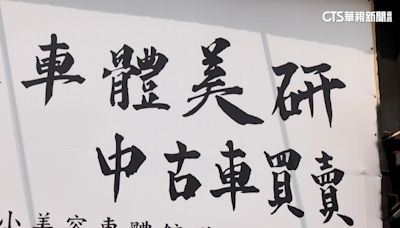 CTS華視新聞
車體美研
中古車買賣
小美容車體